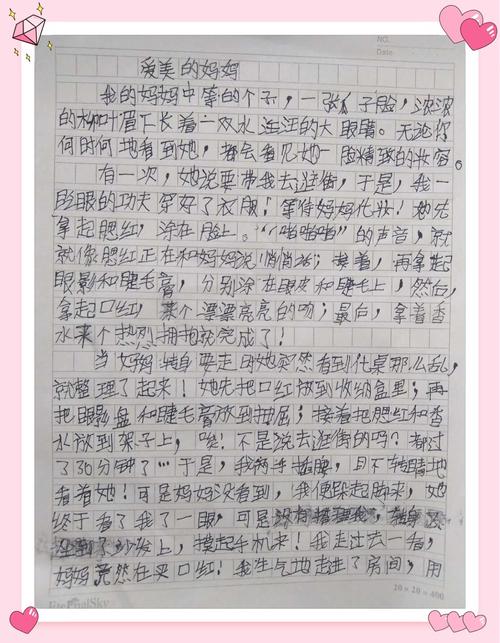 NO.
Date
爱美的妈妈
我的妈妈中等的个子，一张瓜子脸，浓浓
的柳叶眉下长着一双水汪汪的大眼睛。无论你
何时何地看到她，都会看见她一脸精致的妆容。
有一次，她说要带我去逛街，于是，我一
眨眼的功夫穿好了衣服！等待妈妈化妆！她先
拿起腮红，涂在脸上。“啪啪啪”的声音，就
就像腮红正在和妈妈说悄悄话；接着，再拿起
眼影和睫毛膏，分别涂在眼皮和睫毛上，然后，
拿起口红，来个漂漂亮亮的吻；最后，拿着香
水来个热烈拥抱就完成了！
当妈妈转身要走时她突然看到化桌那么乱，
就整理了起来！她先把口红放到收纳盒里；再
把眼影盘和睫毛膏放到抽屉；接着把腮红和香
水放到架子上，唉！不是说去逛街的吗？都过
了30分钟了…于是，我两手插腰，目不转睛地
看着她！可是妈妈没看到，我便跺起脚来，她
终于看了我了一眼，可是没有搭理我，转身
坐到了沙发上，摸起手机来！我走过去一看，
妈妈竟然在买口红！我生气地走进了房间，用
EternalSky
20×20=400